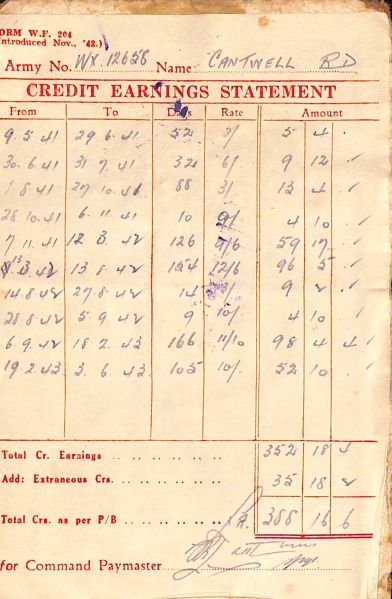 FORM W.F. 204
(Introduced Nov., '42.)
Army No. WX 12658 Name CANTWELL R D
CREDIT EARNINGS STATEMENT
From To Days Rate Amount
9 5 41 29 6 41 52 2/ 5 4
30 6 41 31 7 41 32 6/ 9 12
1 8 41 27 10 41 88 3/ 13 4
28 10 41 6 11 41 10 9/ 4 10
7 11 41 12 3 42 126 9/6 59 17
13 3 42 13 8 42 154 12/6 96 5
14 8 42 27 8 42 14 9 2
28 8 42 5 9 42 9 10/ 4 10
6 9 42 18 2 43 166 11/10 98 4 4
19 2 43 3 6 43 105 10/ 52 10
Total Cr. Earnings .. .. .. .. .. .. 352 18 4
Add: Extraneous Crs. .. .. .. .. .. 35 18 2
Total Crs. as per P/B .. .. .. .. .. 388 16 6
for Command Paymaster